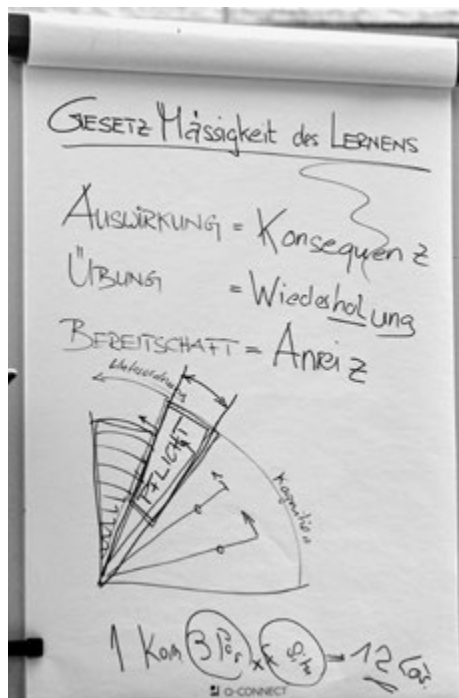 GESETZ Mässigkeit des LERNENS
AUSWIRKUNG = Konsequenz
ÜBUNG = Wiederholung
BEREITSCHAFT = Anreiz
PFLICHT
Kognition
1 Kom 3 Pos x 4 Situ = 12
Q-CONNECT